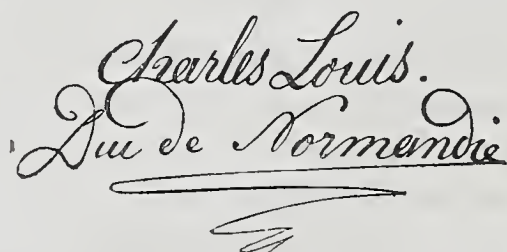 Charles Louis.
Duc de Normandie